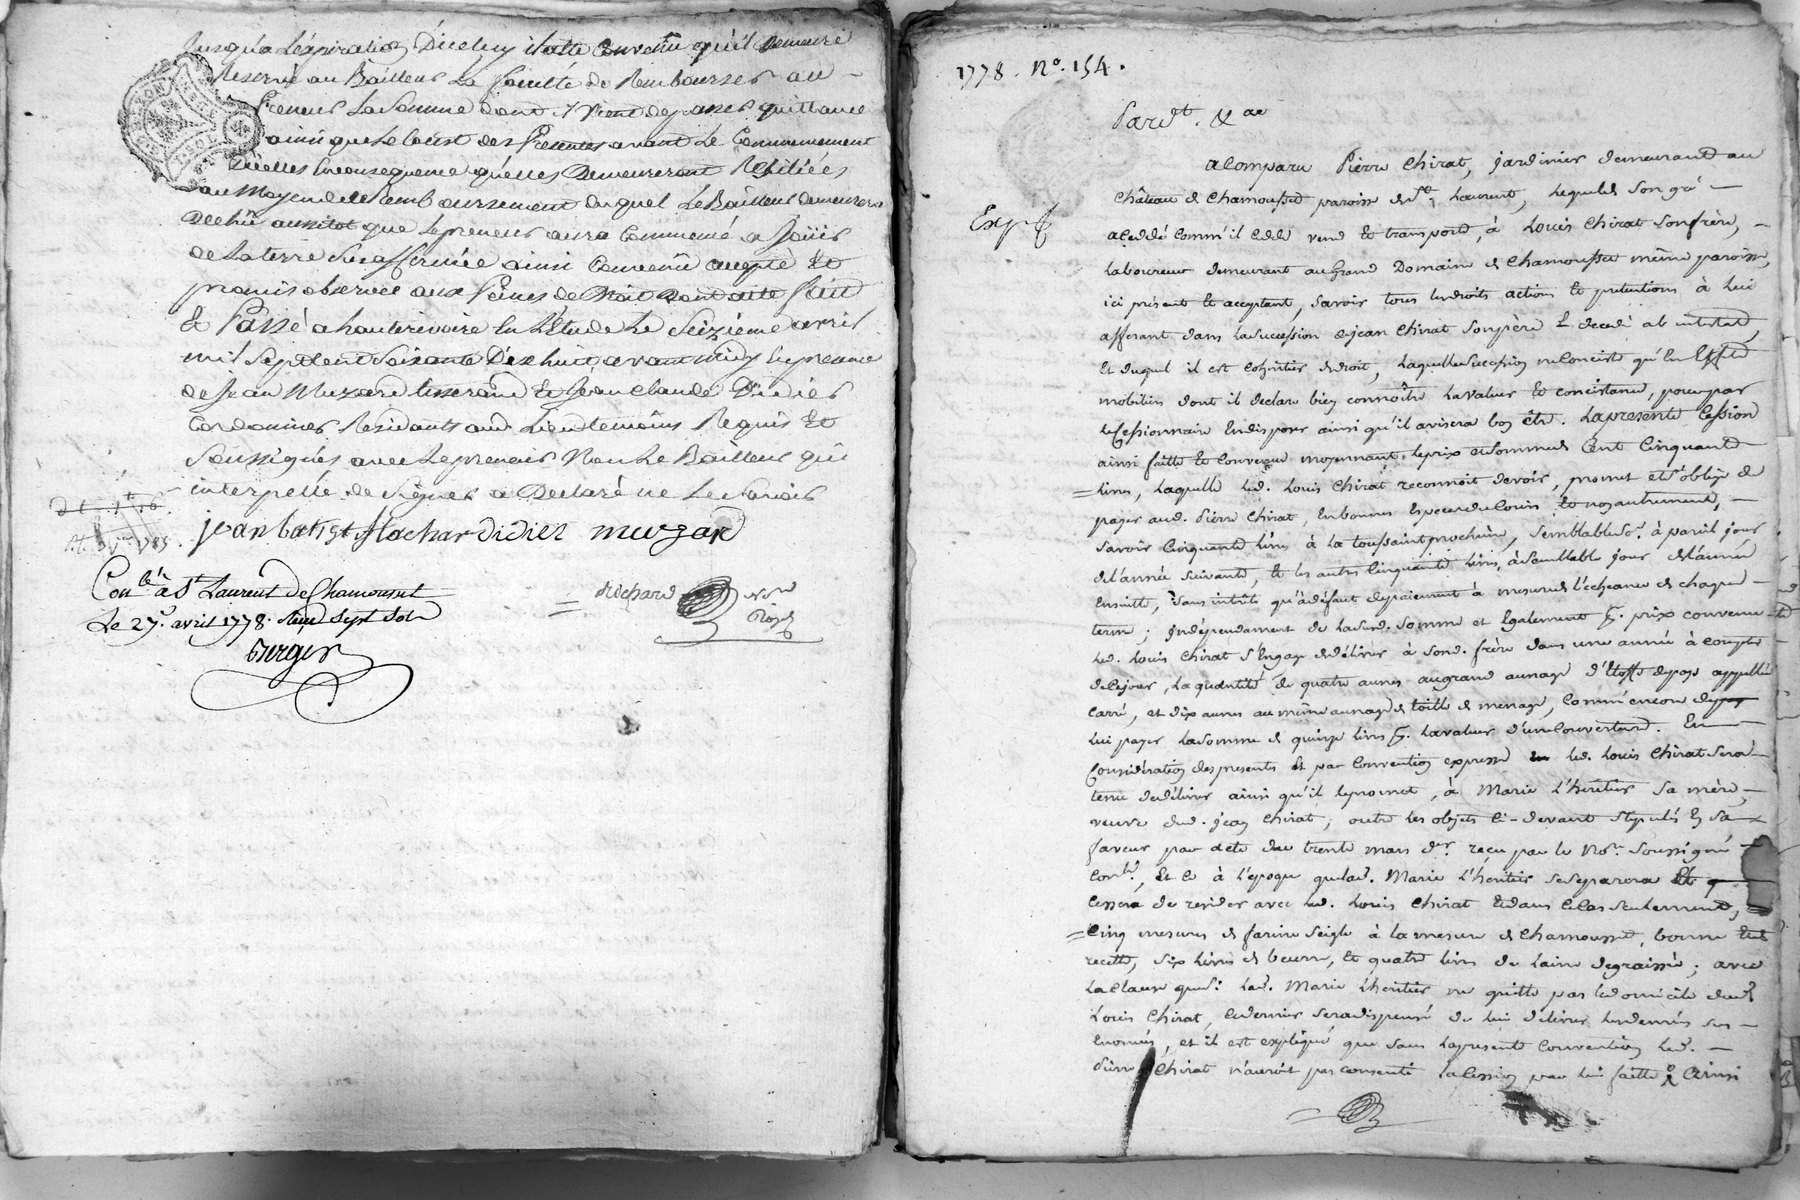 Jusqu'a Lexpiration Diceluy il atté Convenu qu'il Demeure
Reservé au Bailleur La faculté de Rembourser au
Preneur La Somme dont Il Vient de passer quittance
ainsi que Le Cout des Presentes avant Le Commencement
Dicelles Enconsequence quelles Demeureront Resiliées
au Moyen de ce Remboursement duquel Le Bailleur demeurera
Decheu aussitot que Le preneur aura Commencé a Joüir
de La terre Susaffermée ainsi Convenû accepté Et
promis observer aux Peines de Droit Dont acte fait
Et Passé a hauterivoire En L'Etude Le Seizieme avril
mil Septcent Soixante Dix huit avant midy En presence
de Jean Muzard tisserand Et Jean Claude Didier
Cordonnier Residants aud Lieu temoins Requis Et
Soussignés avec Le preneur Non Le Bailleur qui
interpellé de Signer a Declaré ne Le Savoir
jean batist flachar didier muzard
Con.lé à S.t Laurent De Chamousset
Le 27. avril 1778. Reçu Sept Sols
1778. N.o 154.
Pard.t &.a
a Comparu Pierre Chirat, Jardinier demeurant au
Château de Chamousset paroisse de S.t Laurent, Lequel de Son gré
a Cedé Comm'il Cede vend et transporte, à Louis Chirat Son frère,
Laboureur demeurant au Grand Domaine de Chamousset même paroisse,
ici présent et acceptant, Savoir tous Les droits actions et pretentions à Lui
afferant dans La Succession de jean Chirat Son père decedé ab intestat,
Et duquel il est Cohéritier de droit, Laquelle Succession ne Consiste qu'en Effets
mobiliers dont il declare bien connoître La valeur et consistance, pour par
Le Cessionnaire En disposer ainsi qu'il avisera bon être. La presente Cession
ainsi faitte et Convenue moyennant Le prix et Somme de Cent Cinquante
Livres, Laquelle Led. Louis Chirat reconnoit devoir, promet et S'oblige de
payer aud. Pierre Chirat, En bonnes Especes du Cours et non autrement,
Savoir Cinquante Livres à La toussaint prochaine, Semblable S.e à pareil jour
de L'année Suivante, et Les autres Cinquante Livres, à Semblable jour de L'année
Ensuitte, Sans intérêts qu'à défaut de paiement à mesure de L'echeance de Chaque
terme; Indépendament de La Sud. Somme et Egalement p.r prix convenu
Led. Louis Chirat S'Engage de délivrer à Sond. frère dans une année à Compter
de Ce jour, La quantité de quatre aunes au grand aunage d'Etoffe de pays appellée
Carré, et dix aunes au même aunage de toille de menage, Comm'encore de
Lui payer La Somme de quinze Livres p.r La valeur d'une Couverture. En
Considération des presentes et par Convention expresse Led. Louis Chirat Sera
tenu de délivrer ainsi qu'il Le promet, à Marie L'heritier Sa mère,
veuve dud. jean Chirat, outre Les objets Ci-devant Stipulés En Sa
faveur par acte du trente mars d.er reçu par Le No.re Soussigné
Con.lé, Et Ce à L'époque que Lad. Marie L'heritier Se Separera
Cessera de resider avec Led. Louis Chirat Et dans Ce Cas Seulement,
Cinq mesures de farine Seigle à La mesure de Chamousset, bonne et de
recette, Six Livres de beurre, Et quatre Livres de Laine degraissée; avec
La Clause que Si Lad. Marie L'heritier ne quitte pas Le domicile dud.
Louis Chirat, Ce dernier Sera dispensé de Lui délivrer Les denrées Sus
Enoncées, et il est expliqué que Sans La presente Convention Led.
Pierre Chirat n'auroit pas consenti La Cession par Lui faitte; Ainsi